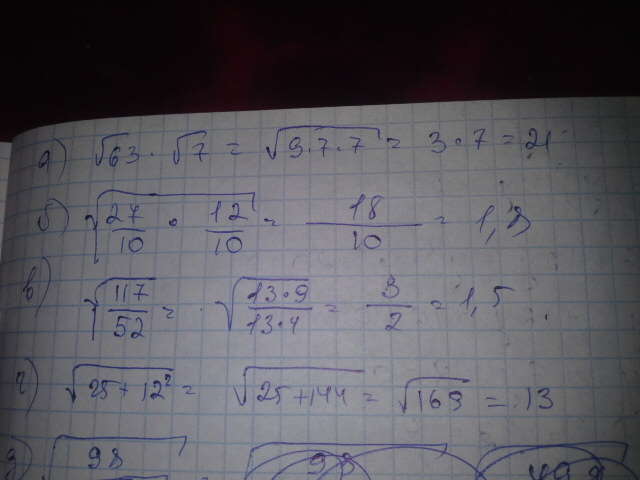 а) √63 · √7 = √9·7·7 = 3·7 = 21
б) √27/10 · 12/10 = 18/10 = 1,8
в) √117/52 = · √13·9/13·4 = 3/2 = 1,5
г) √25+12² = √25+144 = √169 = 13
д) √98